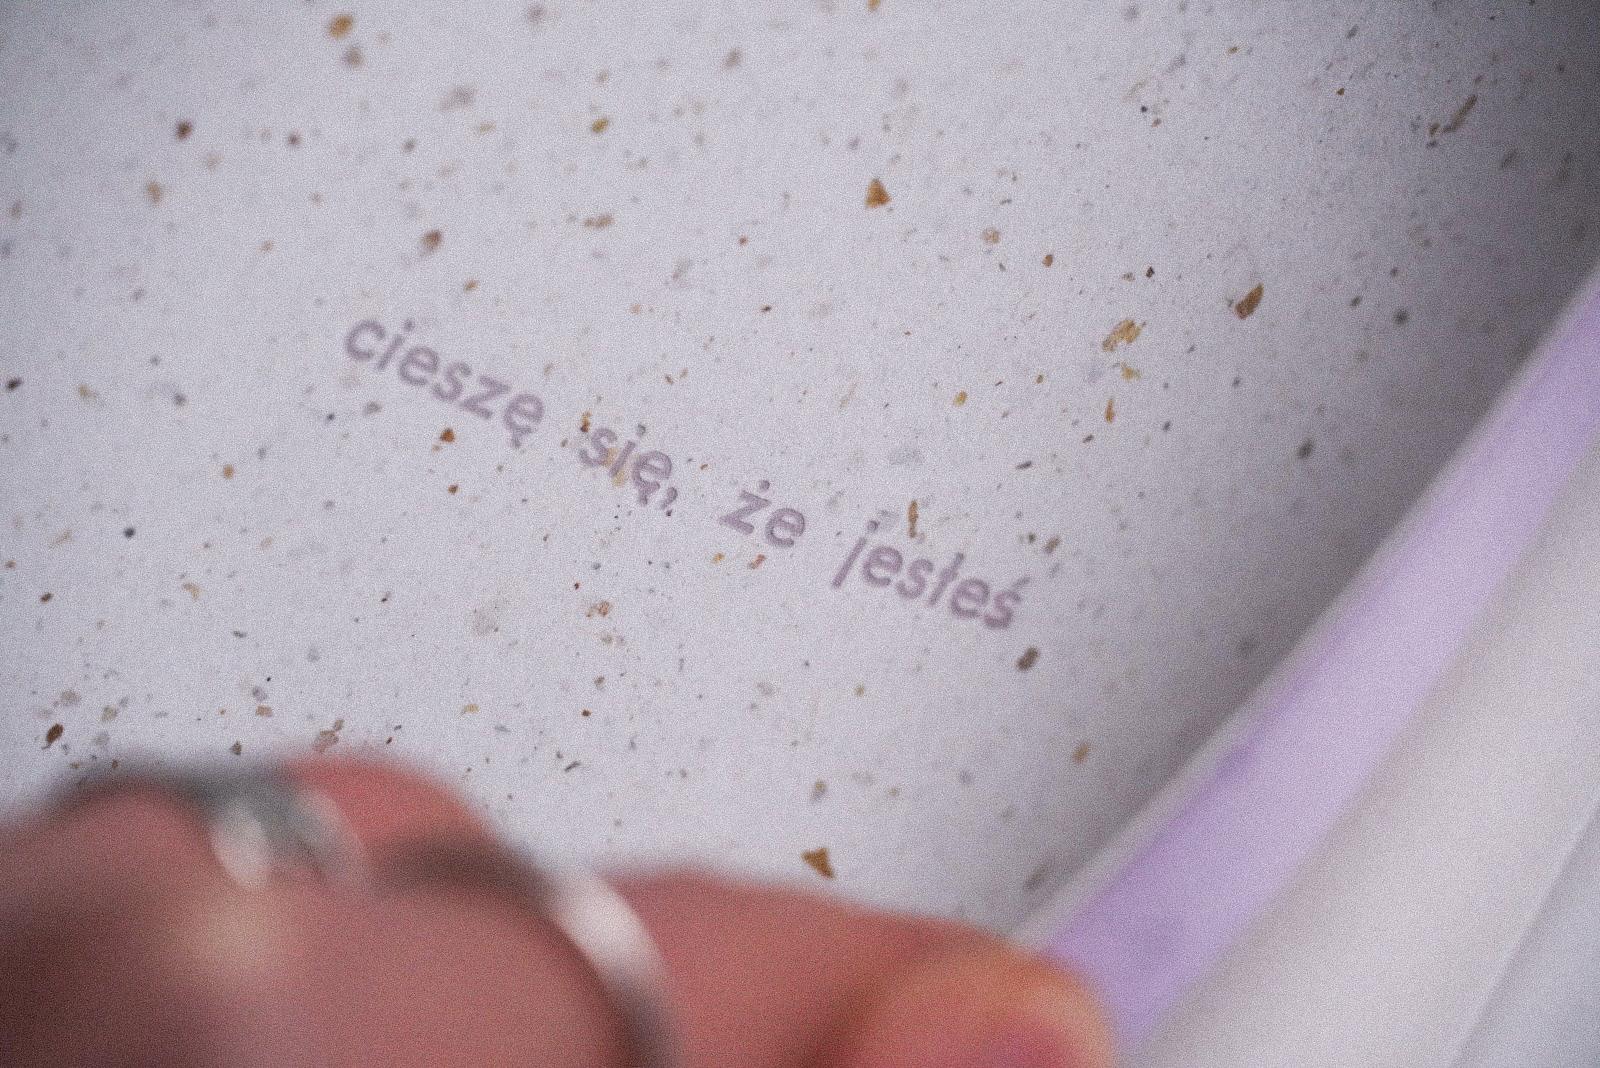 cieszę się, że jesteś